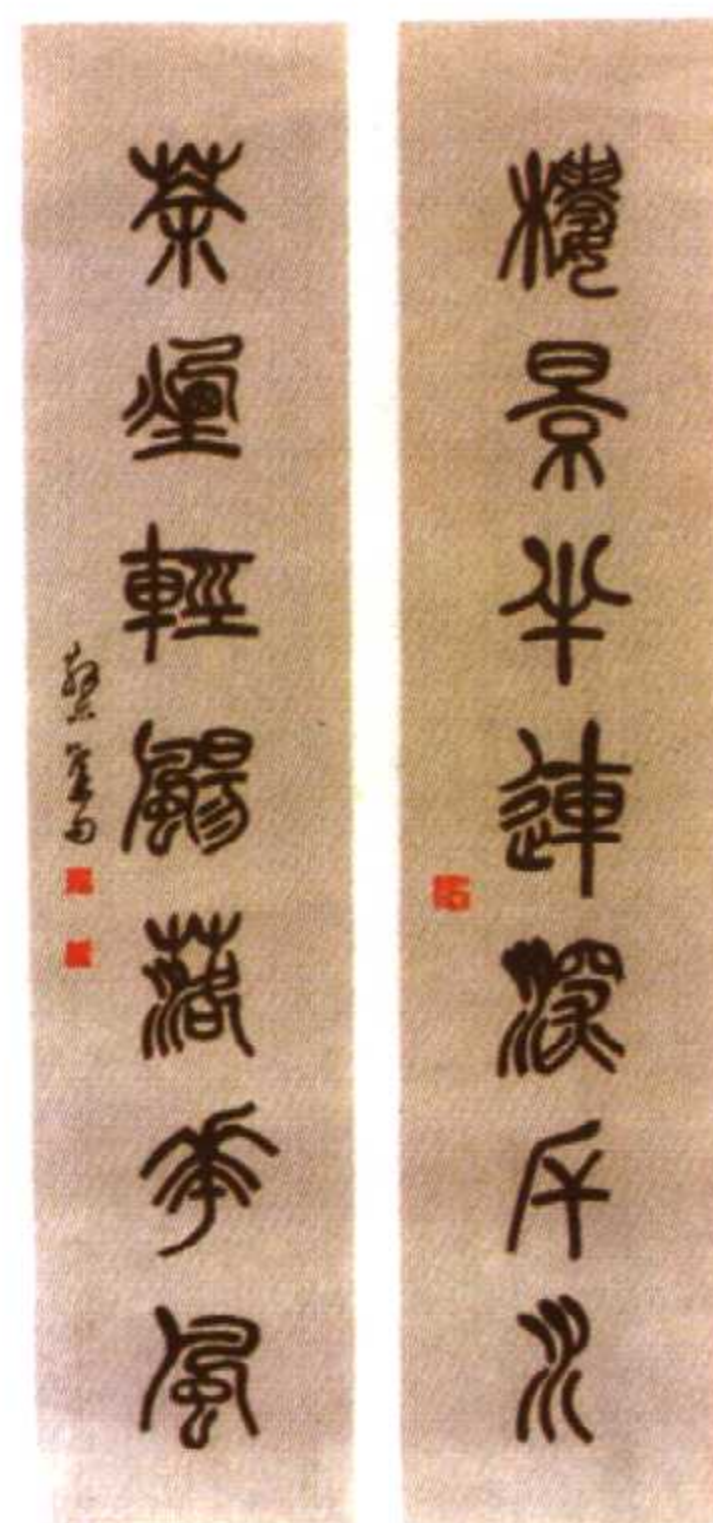 景半連深厈水
茶煙輕颺落花風